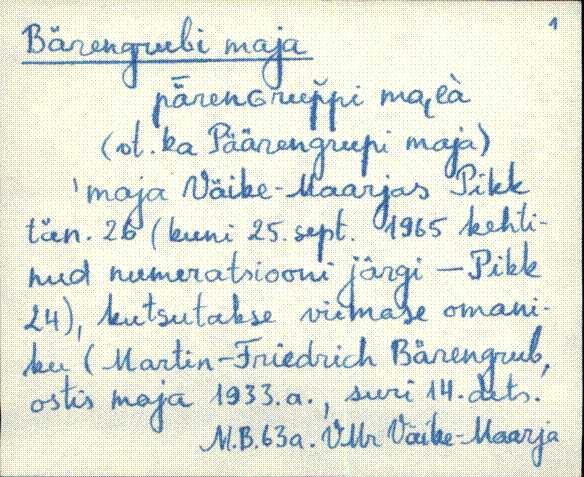 1
Bärengrubi maja
pä̆renGrup̆pi maįà
(vt. ka Päärengrupi maja)
'maja Väike-Maarjas Pikk
tän. 26 (kuni 25. sept. 1965 kehti-
nud numeratsiooni järgi – Pikk
24), kutsutakse viimase omani-
ku (Martin-Friedrich Bärengrub,
ostis maja 1933.a., suri 14. dets.
M.B. 63a. VMr Väike-Maarja